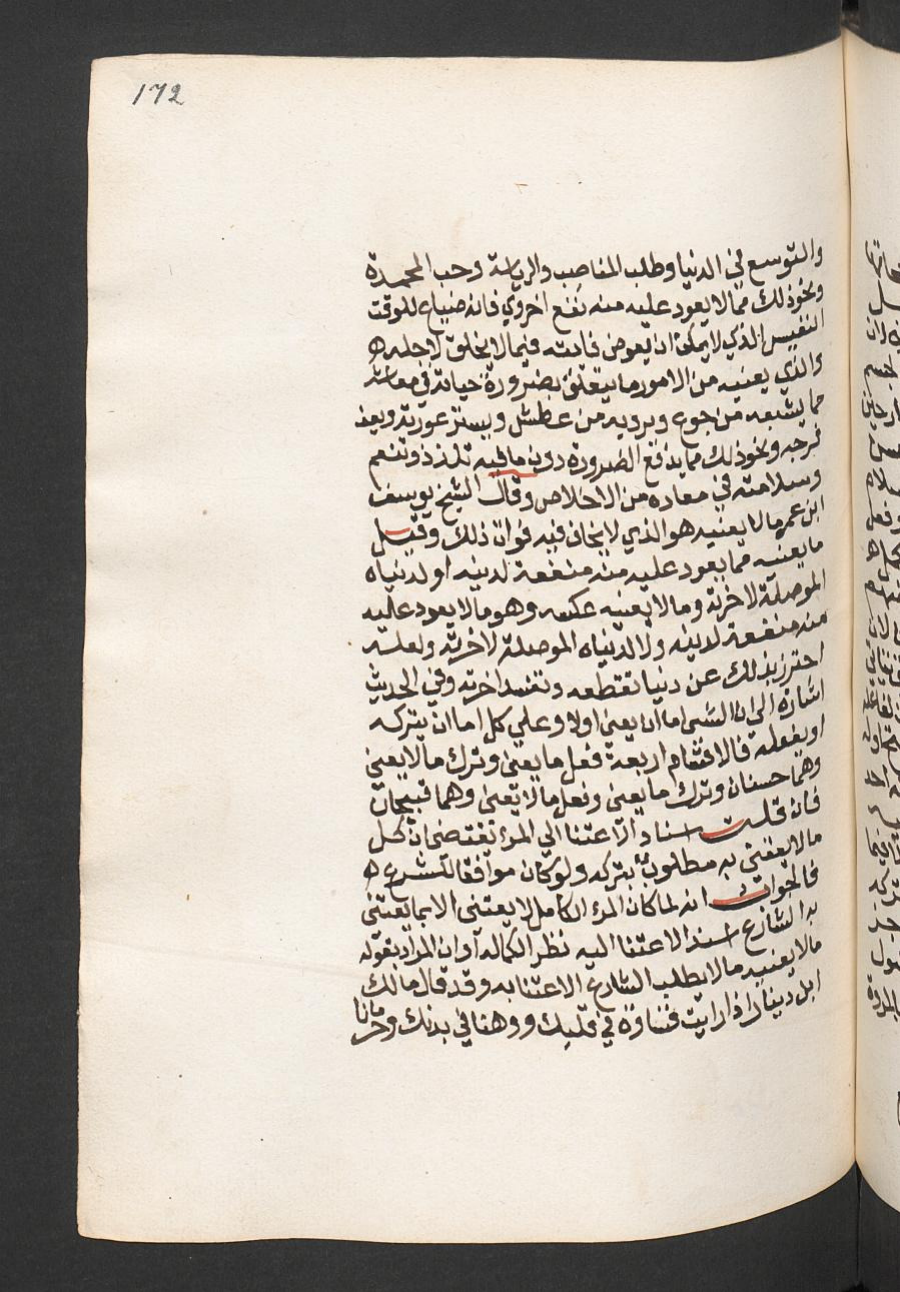 172
والتوسع في الدنيا وطلب المناصب والرياسة وحب المحمدة
ونحو ذلك مما لا يعود عليه منه نفع اخروي فانه ضياع للوقت
النفيس الذي لا يمكن ان يعوض فايته فيما لا يخلق لاجله ه
والذي يعنيه من الامور ما يتعلق بضرورة حياته في معاشه
مما يشبعه من جوع ويرويه من عطش ويستر عورته ويعف
فرجه ونحو ذلك مما يدفع الضرورة دون ما فيه تلذذ وتنعم
وسلامته في معاده من الاخلاص وقال الشيخ يوسف
ابن عمر ما لا يعنيه هو الذي لا يخاف فيه فوات ذلك وقيل
ما يعنيه مما يعود عليه منه منفعة لدينه او لدنياه
الموصلة لاخرته وما لا يعنيه عكسه وهو ما لا يعود عليه
منه منفعة لدينه ولا لدنياه الموصلة لاخرته ولعله
احترز بذلك عن دنيا تقطعه وتفسد اخرته وفي الحديث
اشارة الى ان الشي اما ان يعني اولا وعلي كل اما ان يتركه
او يفعله فالاقسام اربعة فعل ما يعني وترك ما لا يعني
وهما حسنان وترك ما يعني وفعل ما لا يعني وهما قبيحان
فان قلت اسناد الاعتنا الي المرء تقتضي ان كل
ما لا يعتني به مطلوب بتركه ولو كان موافقا للشرع ه
فالجواب انه لما كان المرء الكامل لا يعتني الا بما يعتني
به الشارع اسند الاعتنا اليه نظرا لكماله او ان المراد بقوله
ما لا يعنيه ما لا يطلب الشارع الاعتنا به وقد قال مالك
ابن دينار اذا رايت قساوة في قلبك ووهنا في بدنك وحرمانا